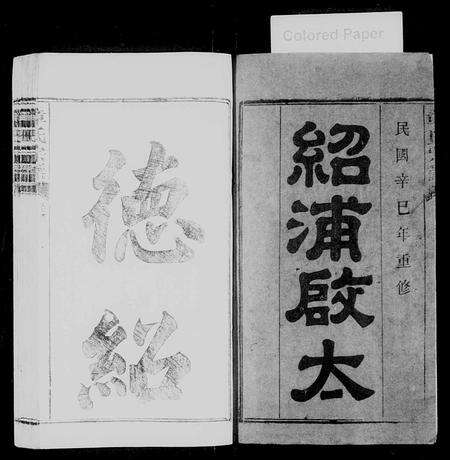 Colored Paper
民國辛巳年重修
紹浦啟太
德紹